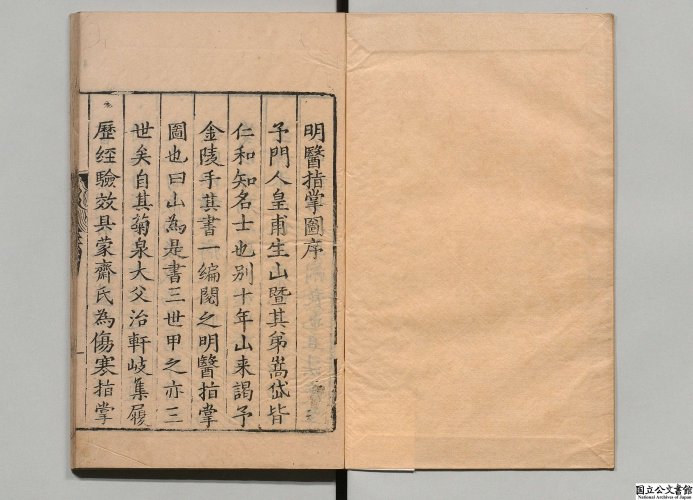 明醫指掌圖序
予門人皇甫生山暨其弟嵩岱皆
仁和知名士也別十年山来謁予
金陵手其書一編閱之明醫指掌
圖也曰山為是書三世甲之亦三
世矣自其菊泉大父治軒岐集履
歷經驗效具蒙齋氏為傷寒指掌
国立公文書館
National Archives of Japan